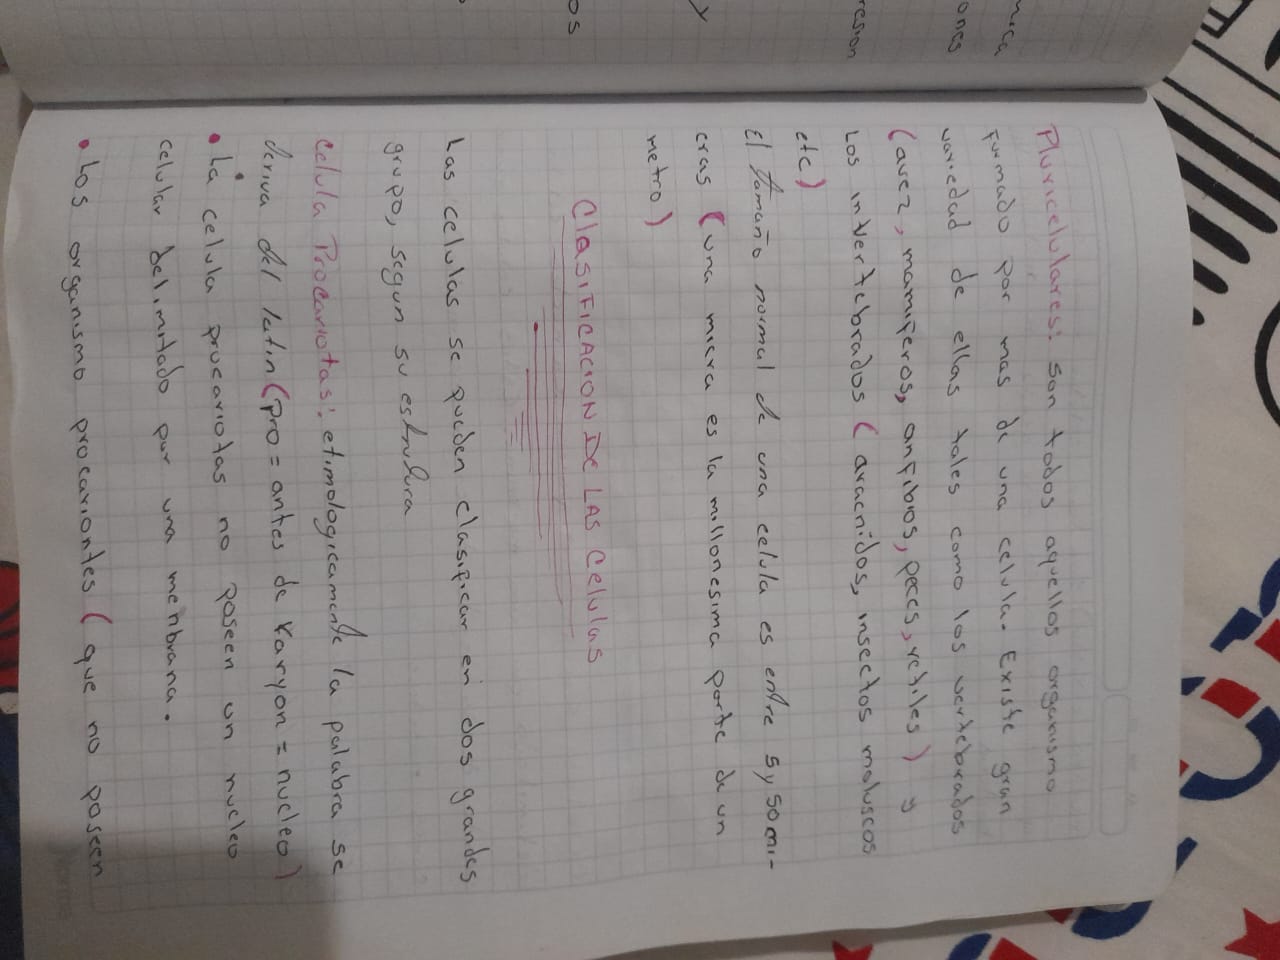 Pluricelulares: son todos aquellos organismo
formado por mas de una celula. Existe gran
variedad de ellas tales como los vertebrados
(avez, mamiferos, anfibios, peces, retiles) y
Los invertebrados (aracnidos, insectos moluscos
etc)
El tamaño normal de una celula es entre 5 y 50 mi-
cras (una micra es la millonesima parte de un
metro)
ClasIFICACION DE LAS Celulas
Las celulas se pueden clasificar en dos grandes
grupo, segun su estrutura
Celula Procariotas: etimologicamente la palabra se
deriva del latin (pro = antes de Karyon = nucleo)
• La celula procariotas no poseen un nucleo
celular delimitado por una menbrana.
• Los organismo procariontes (que no poseen
mica
ones
resion
y
os